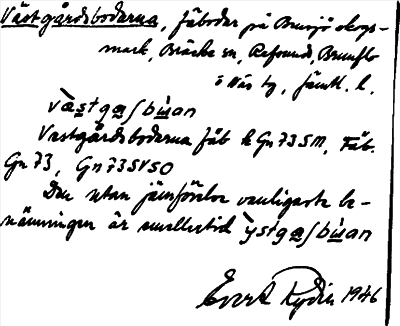 Västgårdsbodarna, fäbodar på Bensjö skogs-
mark, Bräcke sn, Refsunds, Brunflo
o Näs tg, Jämtl. l.
västgaʃbuan
Västgårdsbodarna fäb k Gn 73 SM, Fäb.
Gn 73, Gn 73SVSO
Den utan jämförelse vanligaste be-
nämningen är emellertid ystgaʃbuan
Evert Rydin 1946